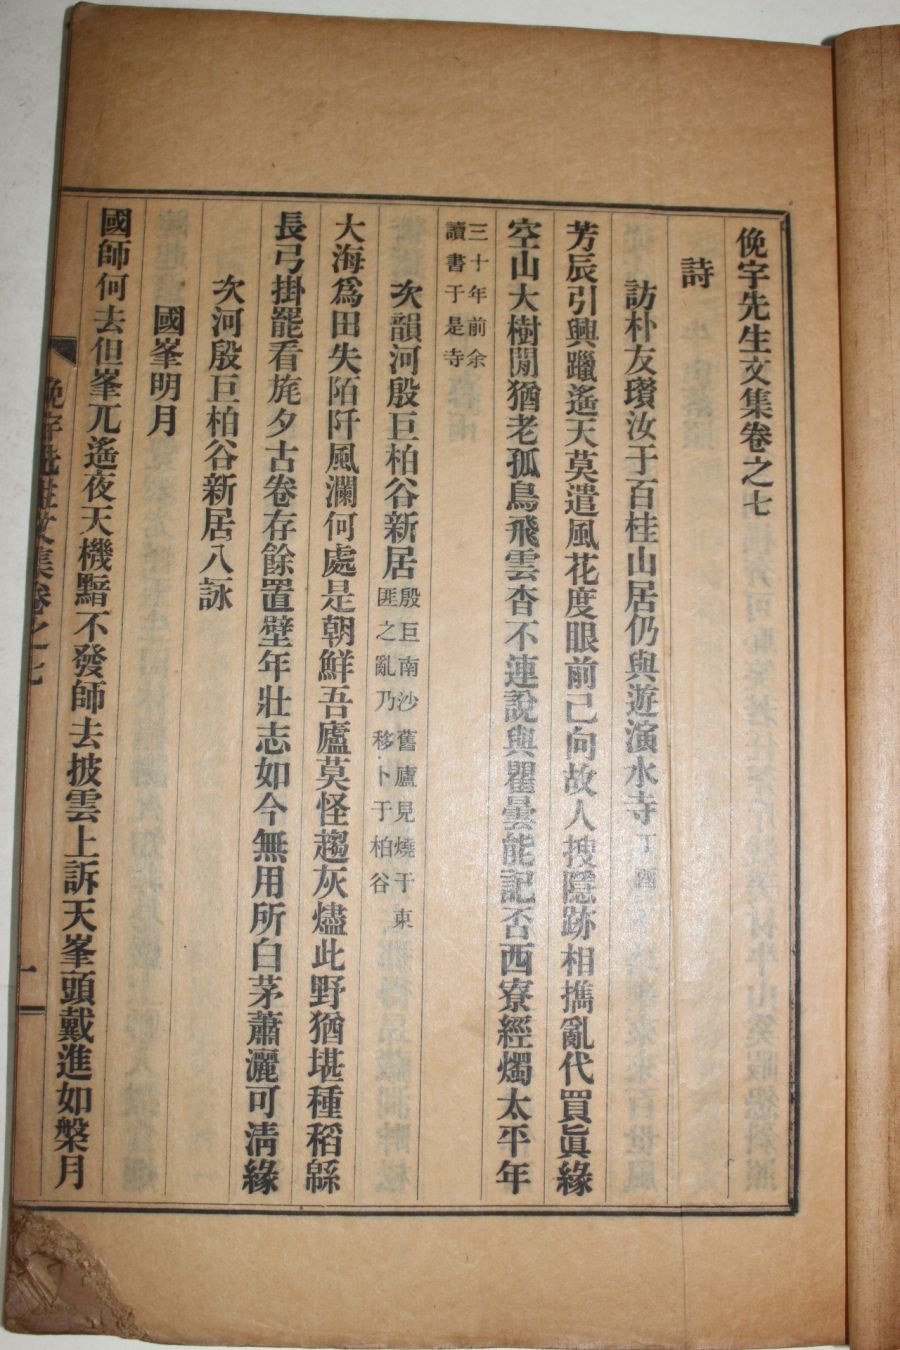 俛宇先生文集卷之七
詩
訪朴友瓚汝于百桂山居仍與遊演水寺
芳辰引興躐遙天莫遣風花度眼前已向故人搜隱跡相擕亂代買眞緣
空山大樹閒猶老孤鳥飛雲杳不連說與瞿曇能記否西寮經燭太平年
三十年前余
讀書于是寺
次韻河殷巨柏谷新居殷巨南沙舊廬見燒于東
匪之亂乃移卜于柏谷
大海爲田失陌阡風瀾何處是朝鮮吾廬莫怪趨灰燼此野猶堪種稻緜
長弓掛罷看旄夕古卷存餘置壁年壯志如今無用所白茅蕭灑可淸緣
次河殷巨柏谷新居八詠
國峯明月
國師何去但峯兀遙夜天機黯不發師去披雲上訴天峯頭戴進如槃月
俛宇先生文集卷之七
一